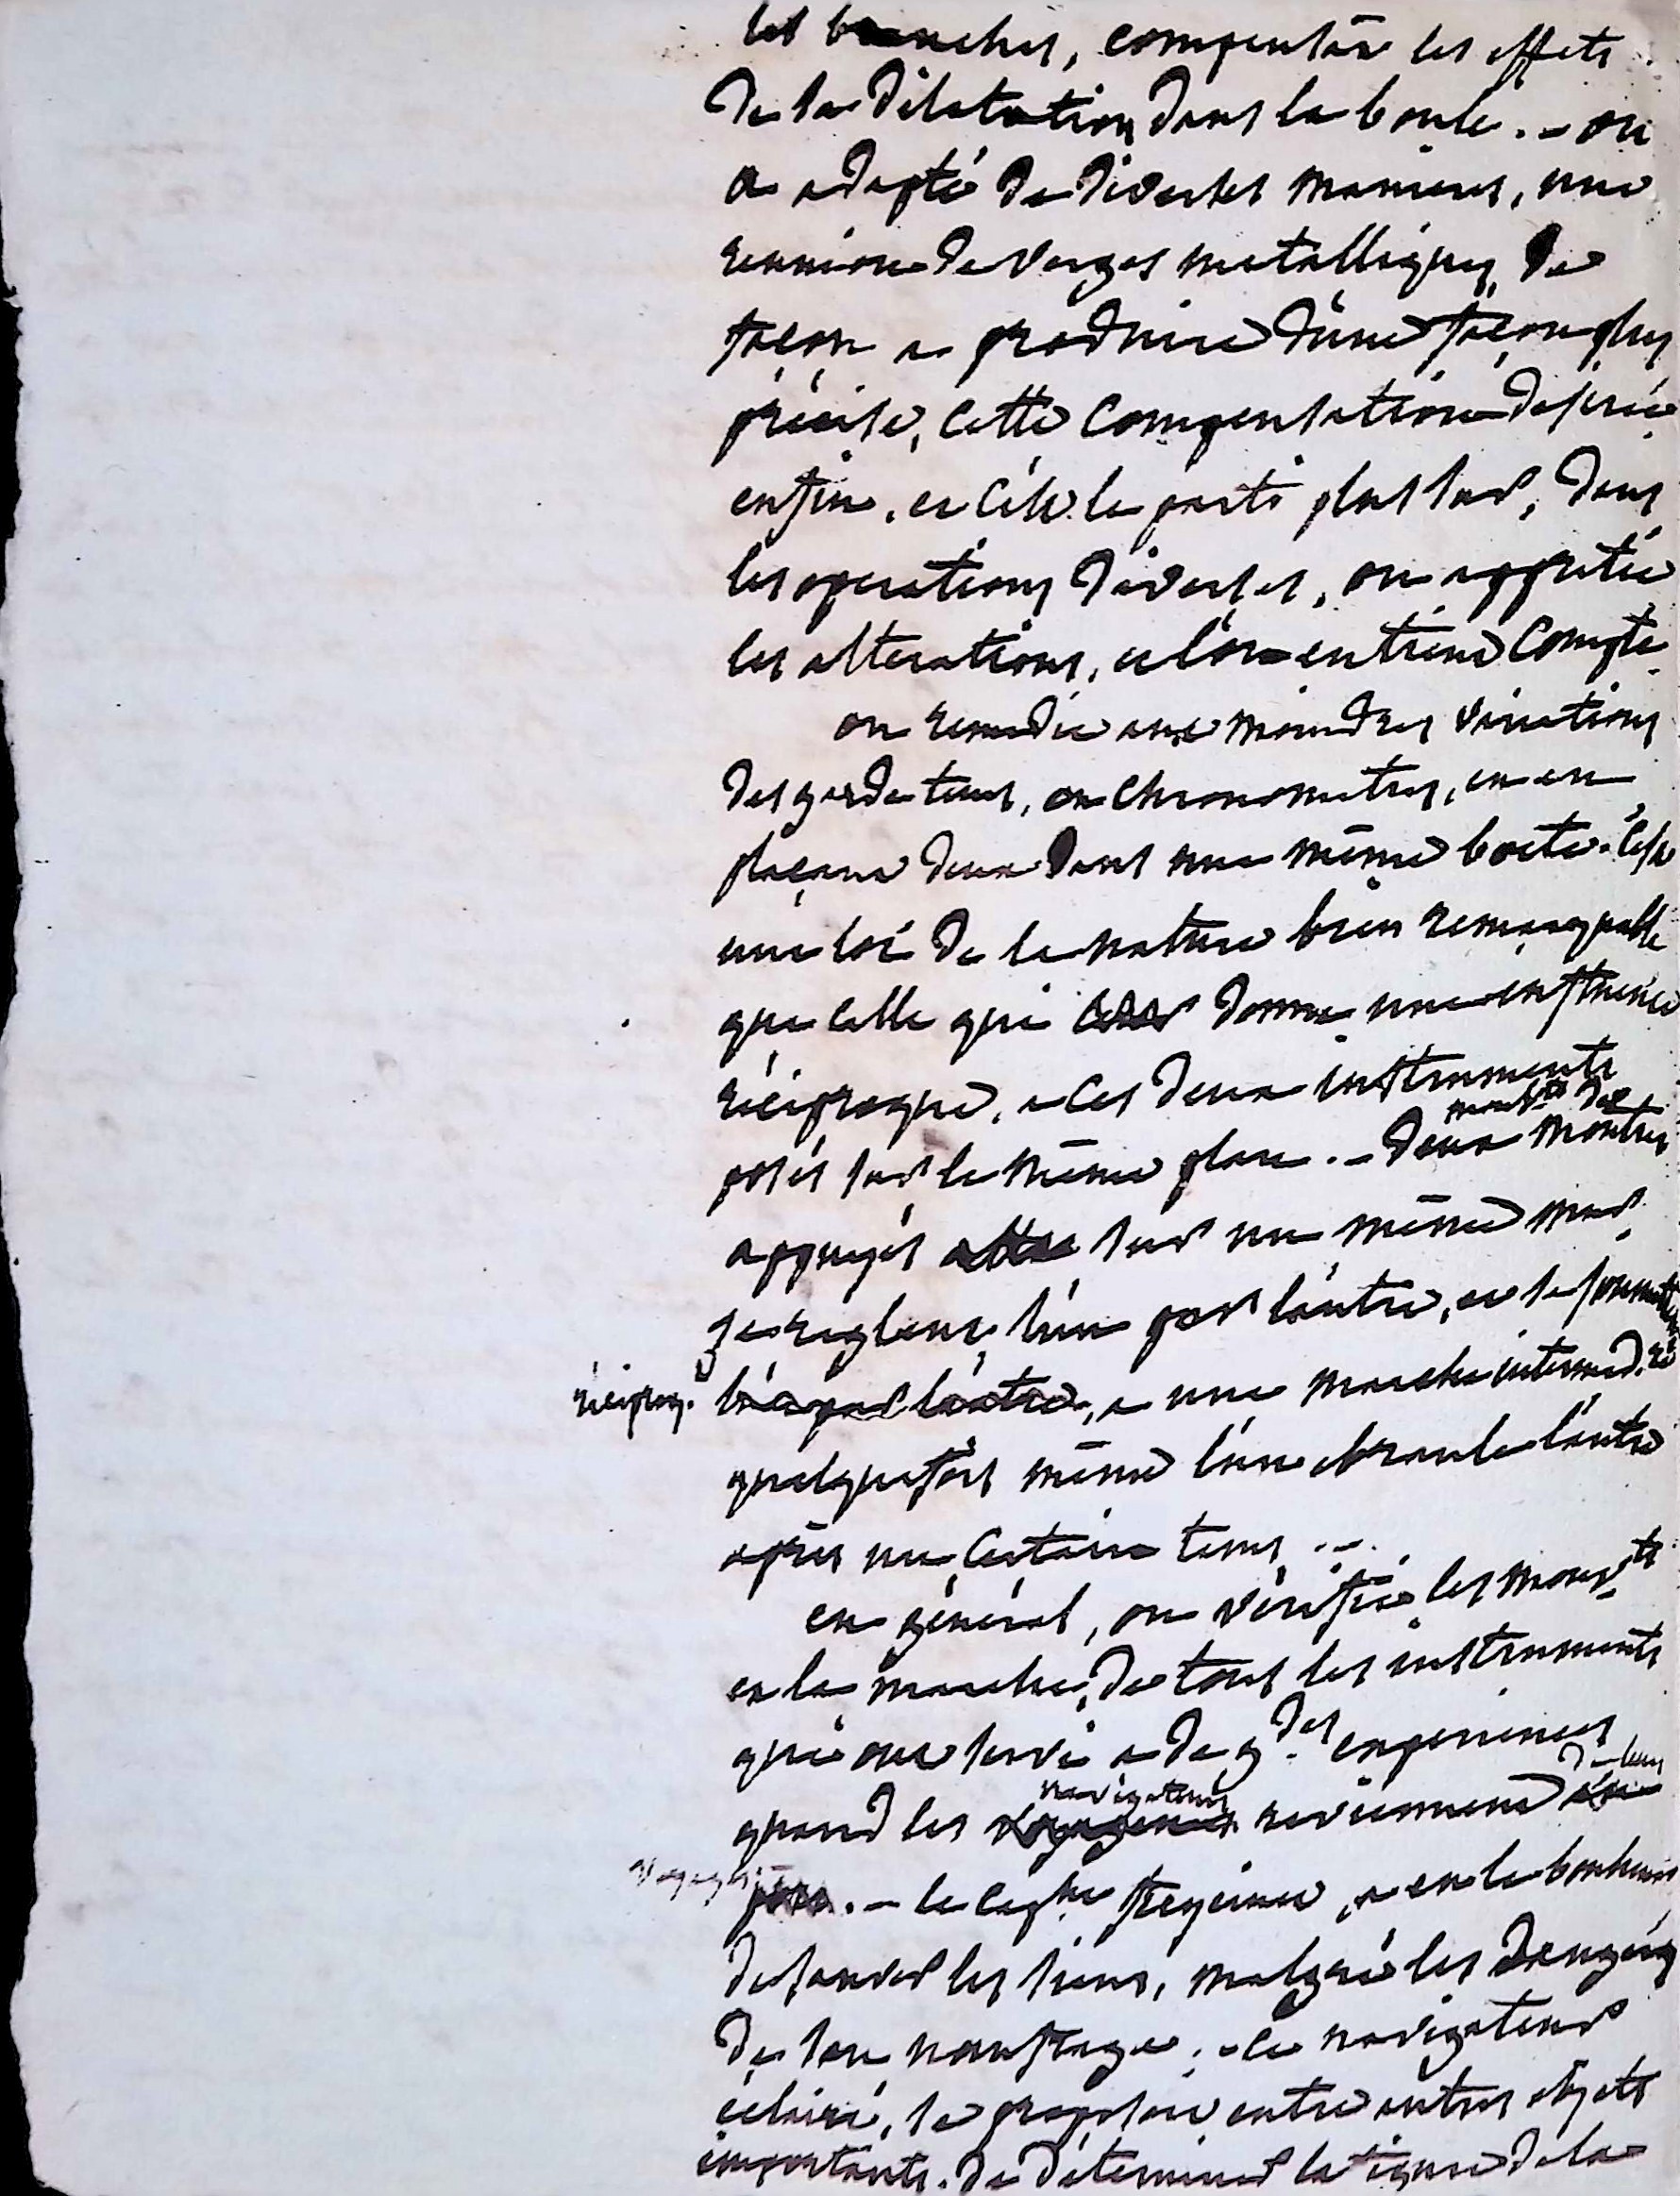 les branches, compensat les effets
de la dilatation dans la boule. - on
a adapté de diverses manieres, une
reunion de verges metalliques, de
façon a produire d'une façon plus
précise, cette compensation desirée
enfin, et c'est le parti plus sur, dans
les operations diverses, on apprécie
les alterations, et l'on en tient compte
on remedie aux moindres variations
des garde tems, ou chronometres, en en
plaçant deux dans une même boete. C'est
une loi de la nature bien remarquable
que celle qui donne une influence
réciproque, a ces deux instruments
posés sur le même plan. - deux mouvts de montres
appuyés sur un même mur,
se reglent, l'un par l'autre, et se soumettent
réciproq. l'un par l'autre, a une marche intermed.re
quelquefois même l'un ebranle l'autre
après un certain tems ...
en général, on vérifie les mouvts
et la marche, de tous les instruments
qui ont servi a de gdes experiences
quand les navigateurs reviennent de leurs
voyages. - le capne freycinet, a eu le bonheur
de sauver les siens, malgré les dangers
de son naufrage. - ce navigateur
éclairé, se proposait entre autres objets
importants, de déterminer la figure de la